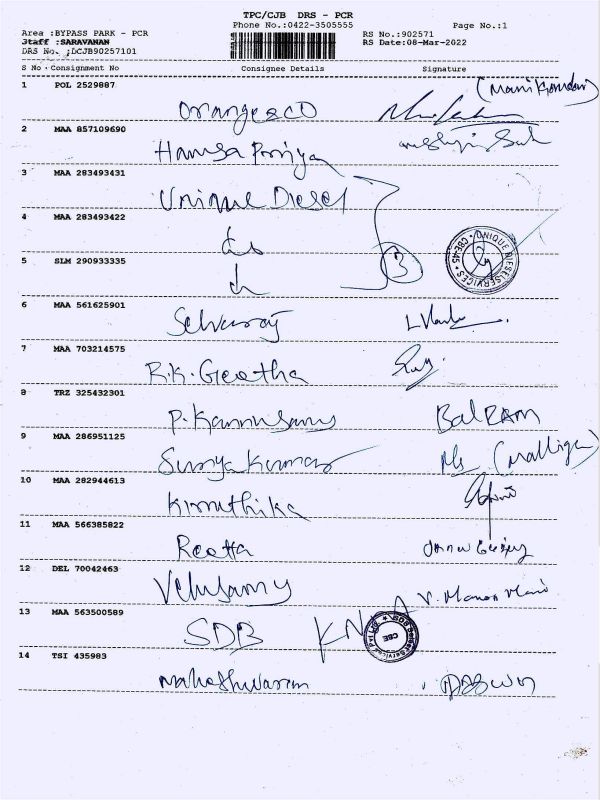 TPC/CJB DRS - PCR
Phone No.:0422-3505555 Page No.:1
Area :BYPASS PARK - PCR RS No.:902571
Staff :SARAVANAN RS Date:08-Mar-2022
DRS No. :DCJB90257101
S No Consignment No Consignee Details Signature
1 POL 2529887 (Manikandan)
orange & co
2 MAA 857109690
Hamsa Priya
3 MAA 283493431
Unique Diesel
4 MAA 283493422
do
5 SLM 290933335 3
do
UNIQUE DIESEL SERVICES * CBE-45 *
6 MAA 561625901
Selvaraj
7 MAA 703214575
R.K. Geetha
8 TRZ 325432301
P. Kannusamy BalRAM
9 MAA 286951125
Suryakumar (Malliga)
10 MAA 282944613
Kiruthika
11 MAA 566385822
Reetta
12 DEL 70042463
Velusamy
13 MAA 563500589
SDB CBE
14 TSI 435983
Maheshwaran